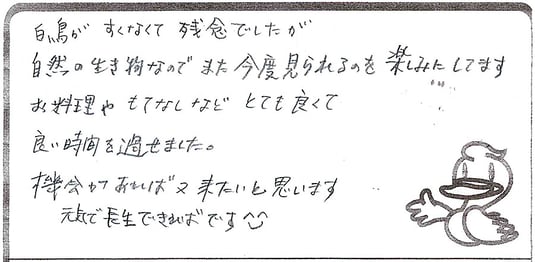 白鳥が すくなくて 残念でしたが
自然の生き物なので また 今度見られるのを 楽しみにしてます
お料理や もてなしなど とても良くて
良い時間を過せました。
機会があれば又来たいと思います
元気で長生できればです